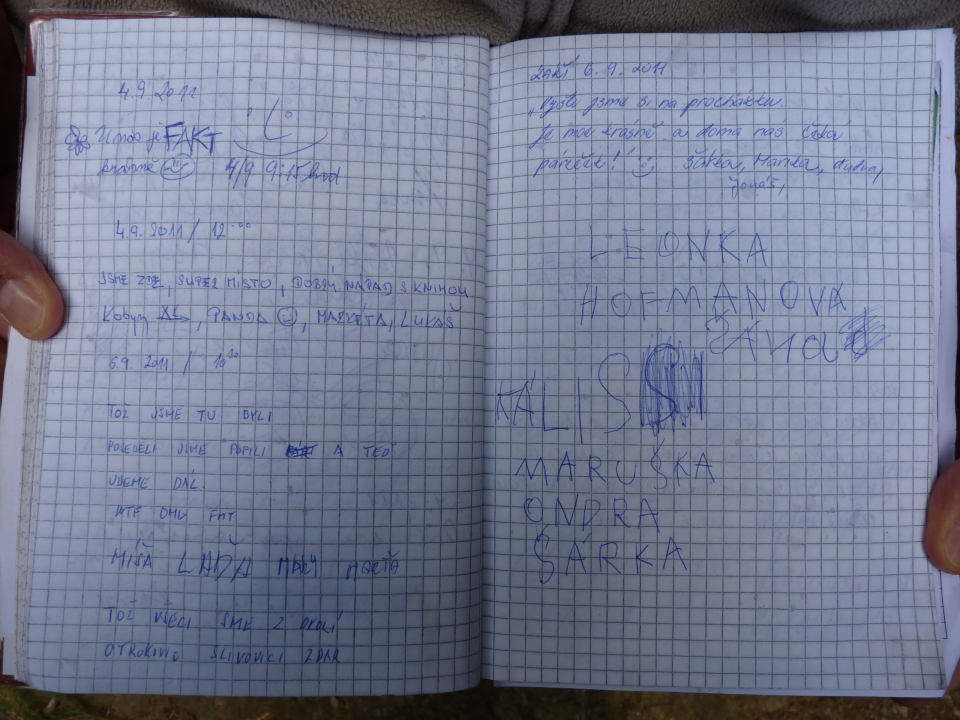 4.9.2011
U nás je FAKT
krásně 4/9 9:15 hod
4.9.2011 / 12
JSME ZDE, SUPER MÍSTO, DOBRÝ NÁPAD S KNIHOU
Kobyny XI, PANDA, MARKÉTA, LUKÁŠ
6.9. 2011 / 10
TOŽ JSME TU BYLI
POSEDĚLI JSME POPILI A TEĎ
JDEME DÁL.
WTF OMG
MÍŠA LÁĎA MÁRTY
TOŽ VŠECI SME Z OKOLÍ
OTROKOVIC SLIVOVICI ZDAR
ZÁŘÍ 6.9. 2011
"Vyšli jsme si na procházku.
Je moc krásně a doma nás čeká
páreček!" Šárka, Hanka,
Jonáš,
LEONKA
HOFMANOVÁ
KÁLIS
MARUŠKA
ONDRA
ŠÁRKA